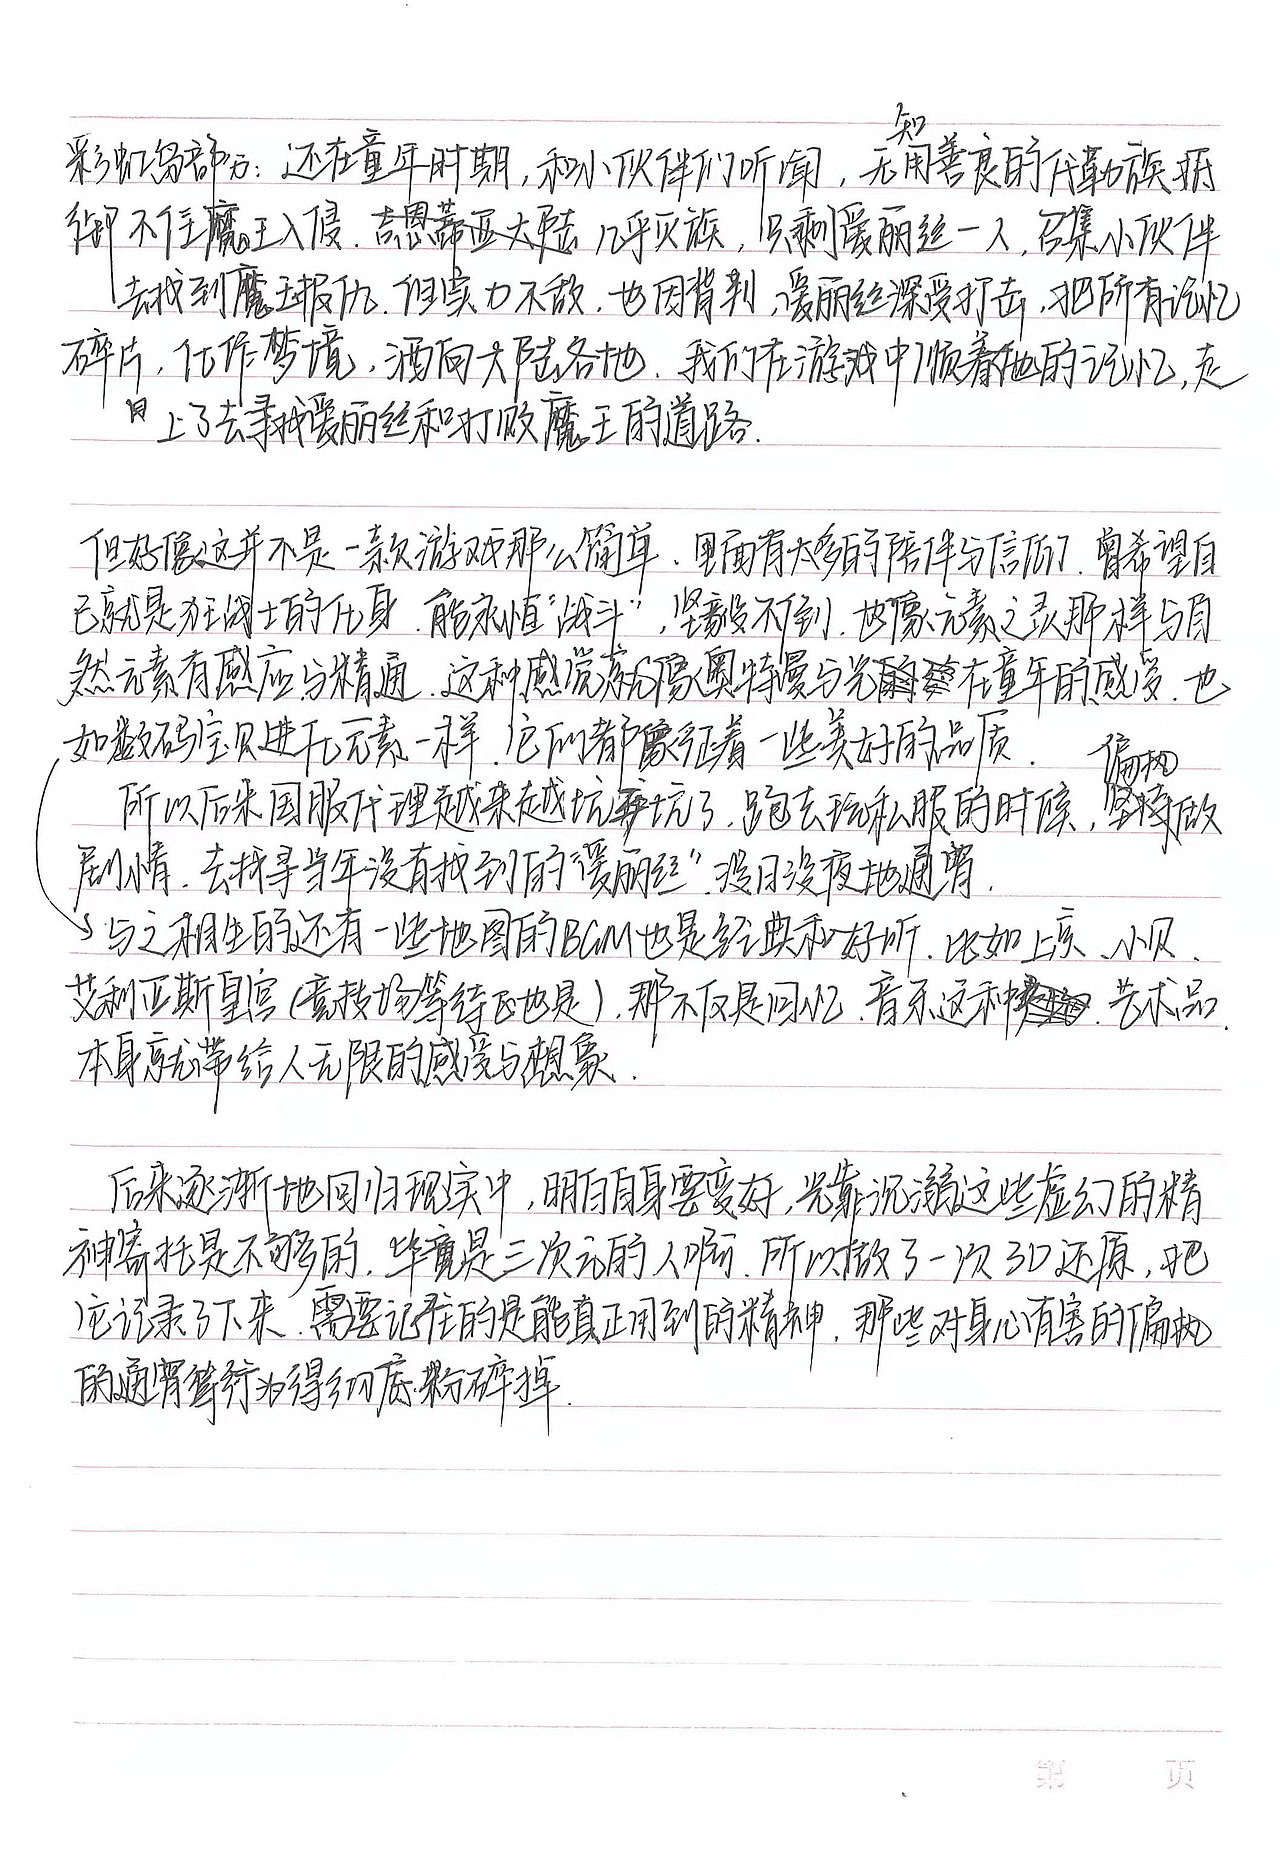 知
彩虹岛部分：还在童年时期，和小伙伴们听闻，无用善良的代勒族抵
御不住魔王入侵．吉恩蒂亚大陆几乎灭族，只剩爱丽丝一人，召集小伙伴
去找到魔王报仇．但实力不敌．也因背判，爱丽丝深受打击，把所有记忆
碎片，化作梦境，洒向大陆各地．我们在游戏中顺着她的记忆，走
上了去寻找爱丽丝和打败魔王的道路．
但好像这并不是一款游戏那么简单．里面有太多的陪伴与信仰．曾希望自
己就是狂战士的化身．能永恒“战斗”，坚毅不倒．也像元素之灵那样与自
然元素有感应与精通．这种感觉就像奥特曼与光在童年的感受．也
如数码宝贝进化元素一样．它们都象征着一些美好的品质．
偏执
所以后来国服代理越来越坑坑了．跑去玩私服的时候，坚持做
剧情．去找寻当年没有找到的“爱丽丝”．没日没夜地通宵．
与之相生的还有一些地图的BGM也是经典和好听．比如上亥、小贝、
艾利亚斯皇宫（竞技场等待区也是）．那不仅是回忆．音乐这种．艺术品．
本身就带给人无限的感受与想象．
后来逐渐地回归现实中，明白自身要变好，光靠沉溺这些虚幻的精
神寄托是不够的．毕竟是三次元的人啊．所以做了一次3D还原，把
它记录了下来．需要记住的是能真正用到的精神．那些对身心有害的偏执
的通宵等行为得彻底粉碎掉．
第 页